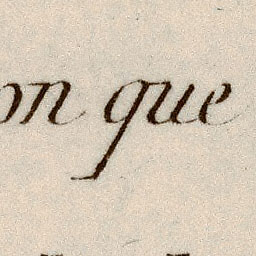 on que